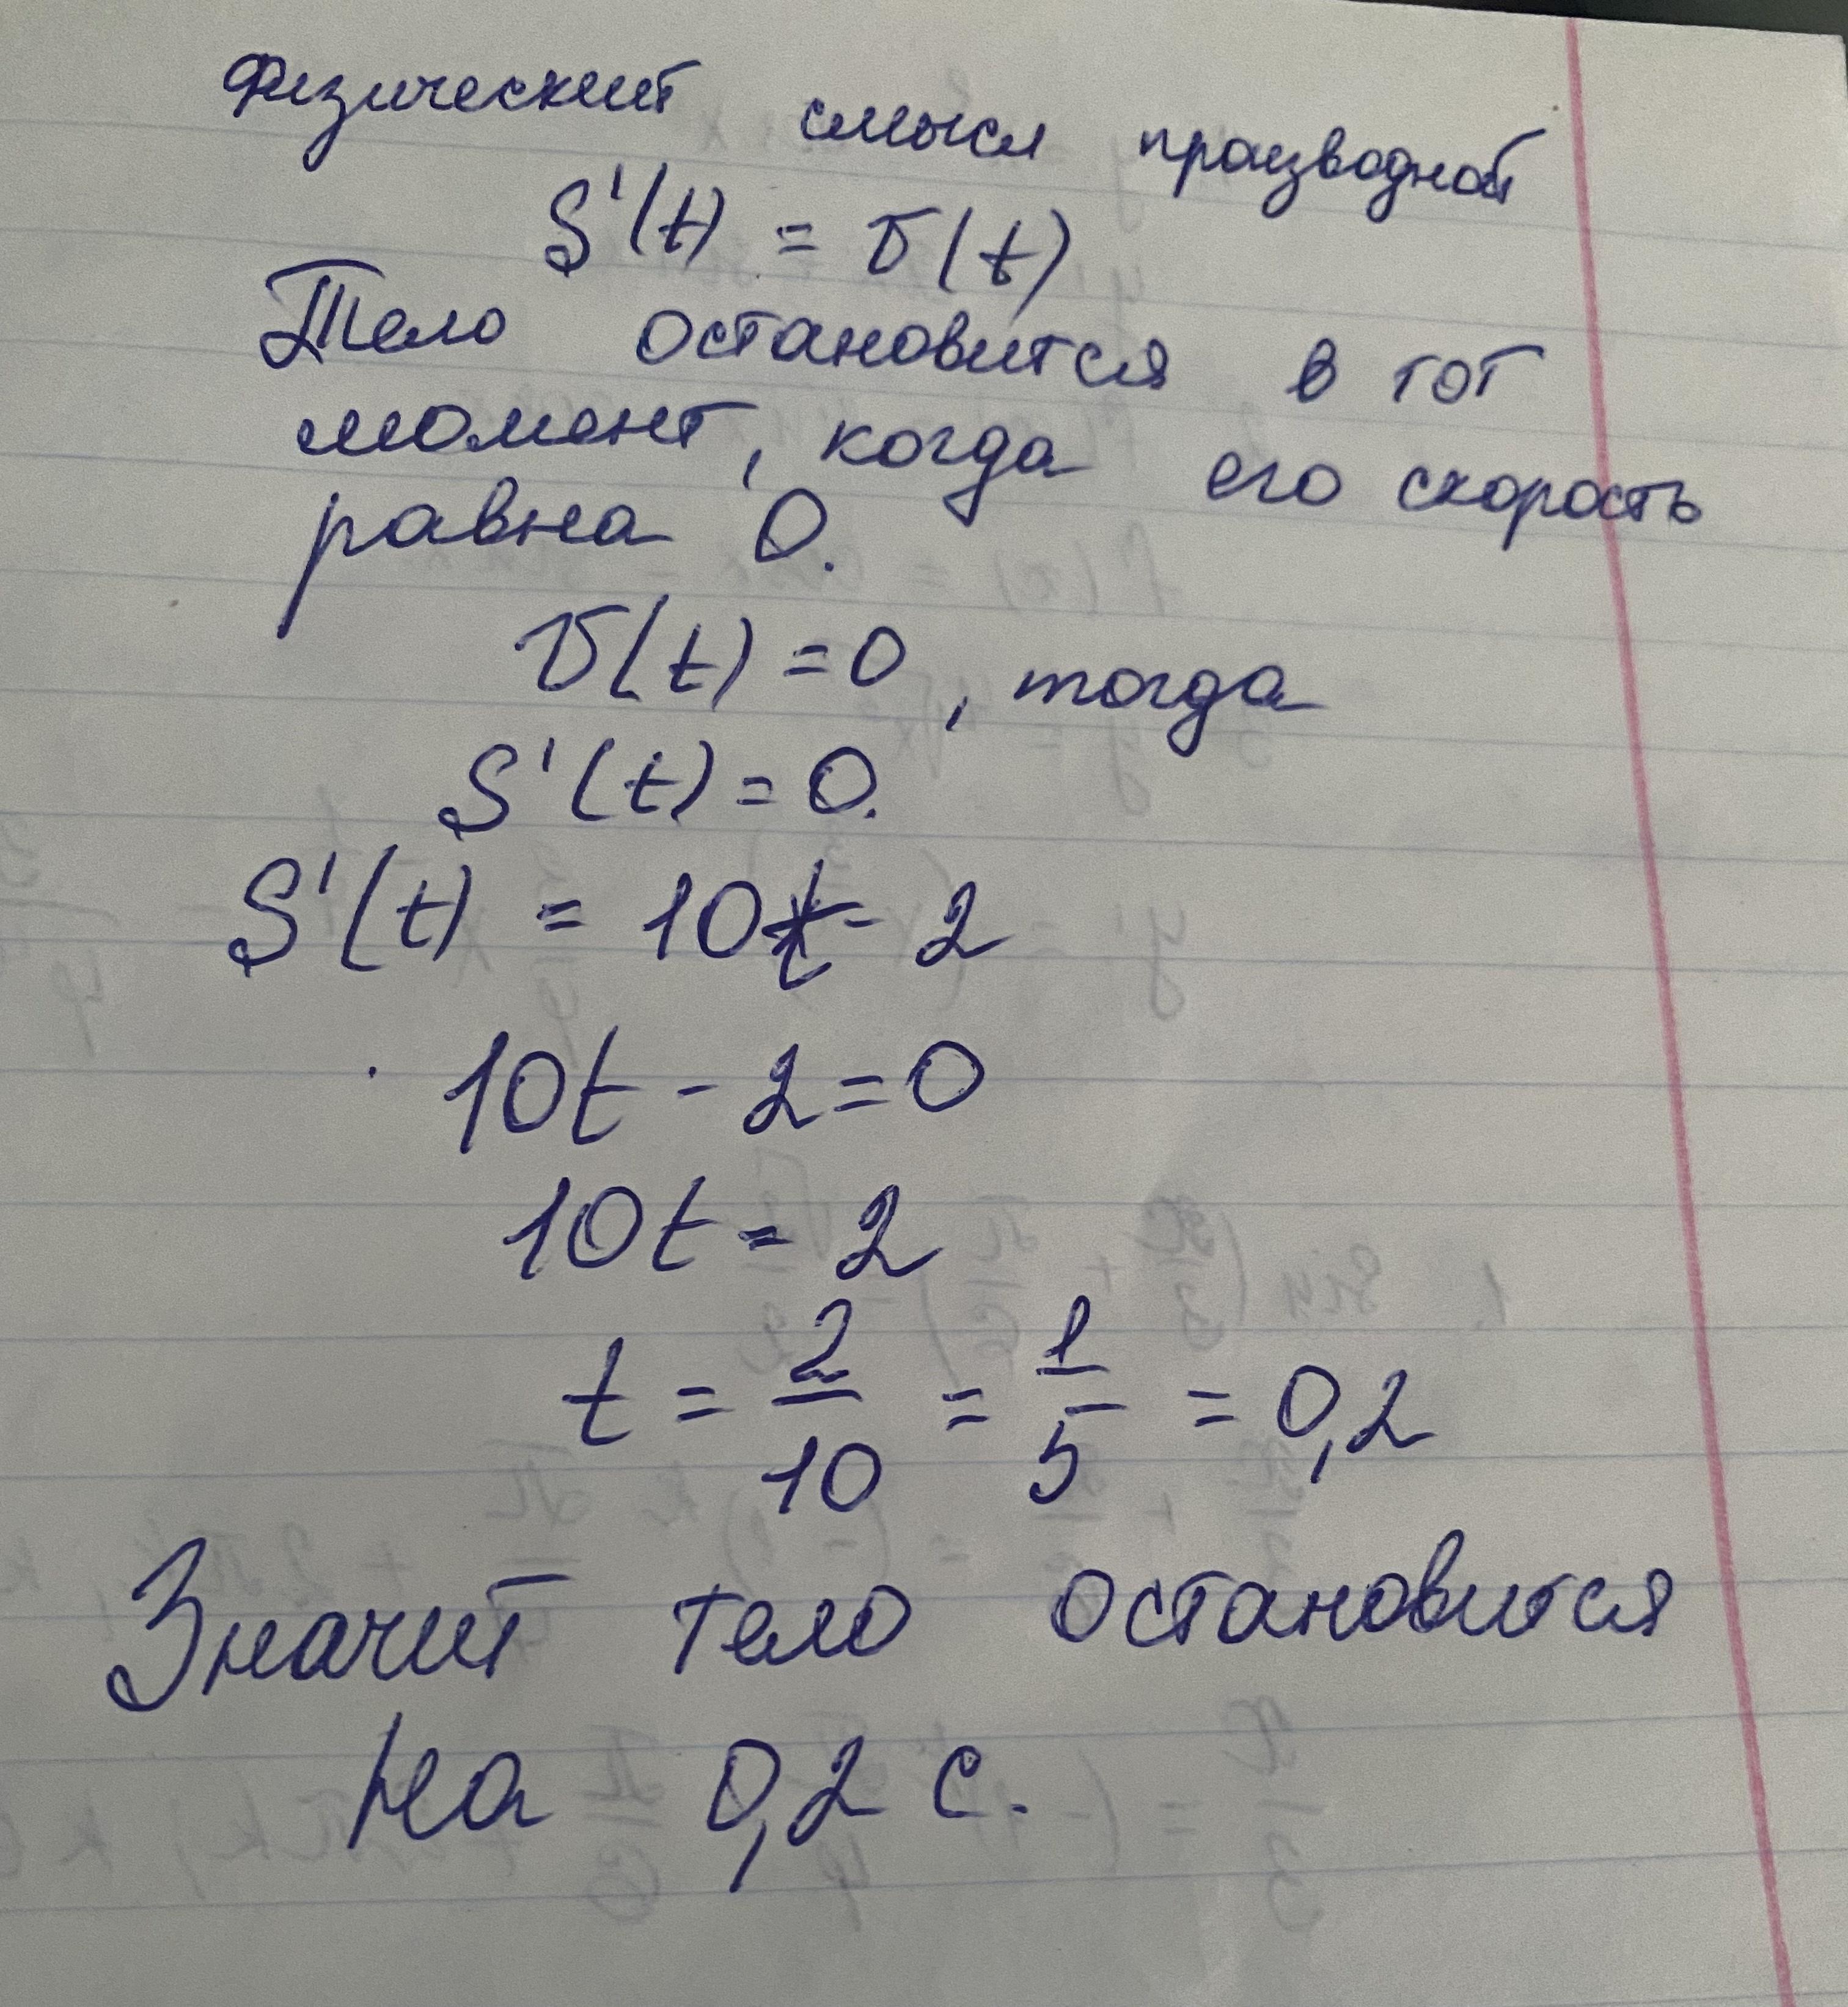 Физический смысл производной
S'(t) = v(t)
Тело остановится в тот
момент, когда его скорость
равна 0.
v(t) = 0, тогда
S'(t) = 0.
S'(t) = 10t - 2
10t - 2 = 0
10t = 2
t = 2/10 = 1/5 = 0,2
Значит тело остановится
на 0,2 с.